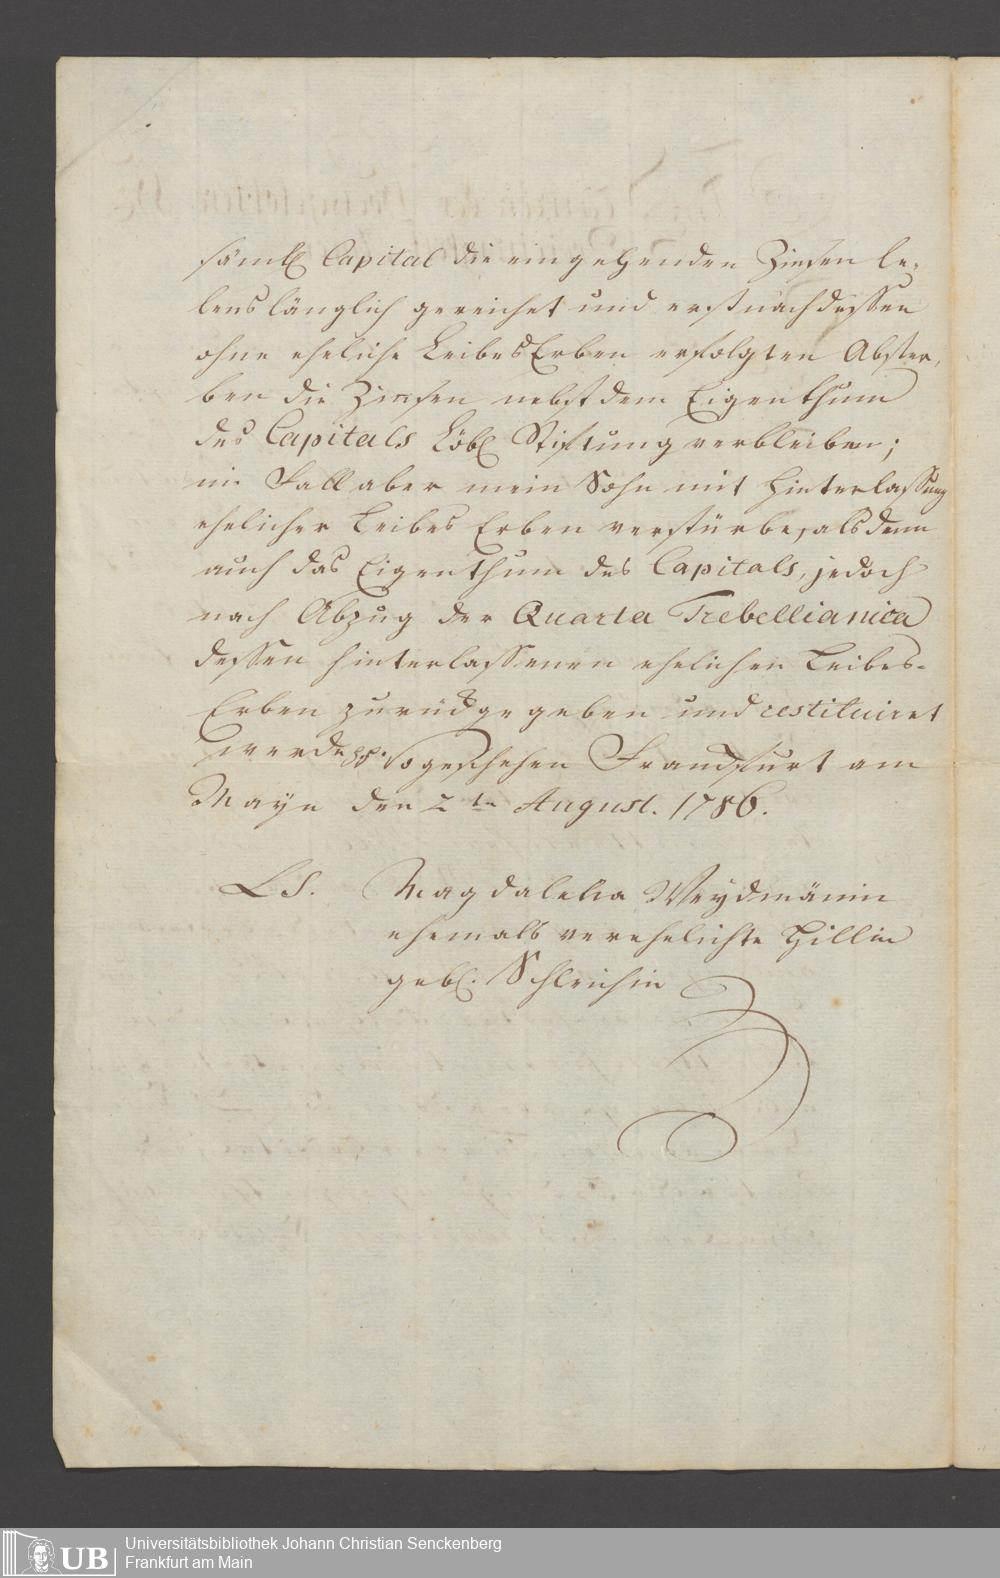 sämtl Capital die eingehenden Zinsen le-
benslänglich gereichet und erst nach dessen
ohne eheliche Leibes Erben erfolgten Abster-
ben die Zinsen nebst dem Eigenthum
des Capitals Löbl Stiftung verbleiben;
im Fall aber mein Sohn mit Hinterlassung
ehelicher Leibes Erben verstürbe, alsdenn
auch das Eigenthum des Capitals, jedoch
nach Abzug der Quarta Trebellianica
dessen hinterlassenen ehelichen Leibes-
Erben zurückgegeben und restituiret
werde. So geschehen Franckfurt am
Mayn den 2te August. 1786.
LS. Magdalena Weydmännin
ehemals verehelichte Hillin
gebl. Schleichin
Universitätsbibliothek Johann Christian Senckenberg
Frankfurt am Main
UB